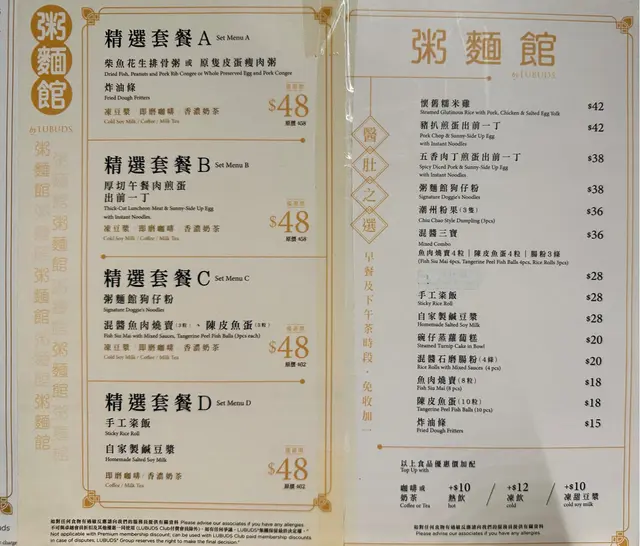 粥麵館
by LUBUDS
精選套餐A Set Menu A
柴魚花生排骨粥 或 原隻皮蛋瘦肉粥
Dried Fish, Peanuts and Pork Rib Congee or Whole Preserved Egg and Pork Congee
炸油條
Fried Dough Fritters
凍豆漿 即磨咖啡 香濃奶茶
Cold Soy Milk / Coffee / Milk Tea
優惠價
$48
原價 $58
精選套餐B Set Menu B
厚切午餐肉煎蛋
出前一丁
Thick-Cut Luncheon Meat & Sunny-Side Up Egg
with Instant Noodles
凍豆漿 即磨咖啡 香濃奶茶
Cold Soy Milk / Coffee / Milk Tea
優惠價
$48
原價 $58
精選套餐C Set Menu C
粥麵館狗仔粉
Signature Doggie's Noodles
混醬魚肉燒賣(3粒)、陳皮魚蛋(3粒)
Fish Siu Mai with Mixed Sauces, Tangerine Peel Fish Balls (3pcs each)
凍豆漿 即磨咖啡 香濃奶茶
Cold Soy Milk / Coffee / Milk Tea
優惠價
$48
原價 $62
精選套餐D Set Menu D
手工粢飯
Sticky Rice Roll
自家製鹹豆漿
Homemade Salted Soy Milk
即磨咖啡 香濃奶茶
Coffee / Milk Tea
優惠價
$48
原價 $62
如對任何食物有過敏反應請向我們的服務員提供有關資料 Please advise our associates if you have any allergies
Not applicable with Premium membership discount; can be used with LUBUDS Club paid membership discounts
in case of disputes, LUBUDS' Group reserves the right to make the final decision.
粥麵館
by LUBUDS
醫肚之選
早餐及下午茶時段·免收加一
懷舊糯米雞 $42
Steamed Glutinous Rice with Pork, Chicken & Salted Egg Yolk
豬扒煎蛋出前一丁 $42
Pork Chop & Sunny-Side Up Egg
with Instant Noodles
五香肉丁煎蛋出前一丁 $38
Spicy Diced Pork & Sunny-Side Up Egg
with Instant Noodles
粥麵館狗仔粉 $38
Signature Doggie's Noodles
潮州粉果(3隻) $36
Chiu Chao Style Dumpling (3pcs)
混醬三寶 $36
Mixed Combo
魚肉燒賣4粒|陳皮魚蛋4粒|腸粉3條
(Fish Siu Mai 4pcs, Tangerine Peel Fish Balls 4pcs, Rice Rolls 3pcs)
$28
手工粢飯 $28
Sticky Rice Roll
自家製鹹豆漿 $28
Homemade Salted Soy Milk
碗仔蒸蘿蔔糕 $20
Steamed Turnip Cake in Bowl
混醬石磨腸粉(4條) $20
Rice Rolls with Mixed Sauces (4 pcs)
魚肉燒賣(8粒) $18
Fish Siu Mai (8 pcs)
陳皮魚蛋(10粒) $18
Tangerine Peel Fish Balls (10 pcs)
炸油條 $15
Fried Dough Fritters
以上食品優惠價加配
Top Up with
咖啡或
奶茶
Coffee or Tea
+$10
熱飲
hot
+$12
凍飲
cold
+$10
凍甜豆漿
cold soy milk
如對任何食物有過敏反應請向我們的服務員提供有關資料
Please advise our associates if you have any allergies